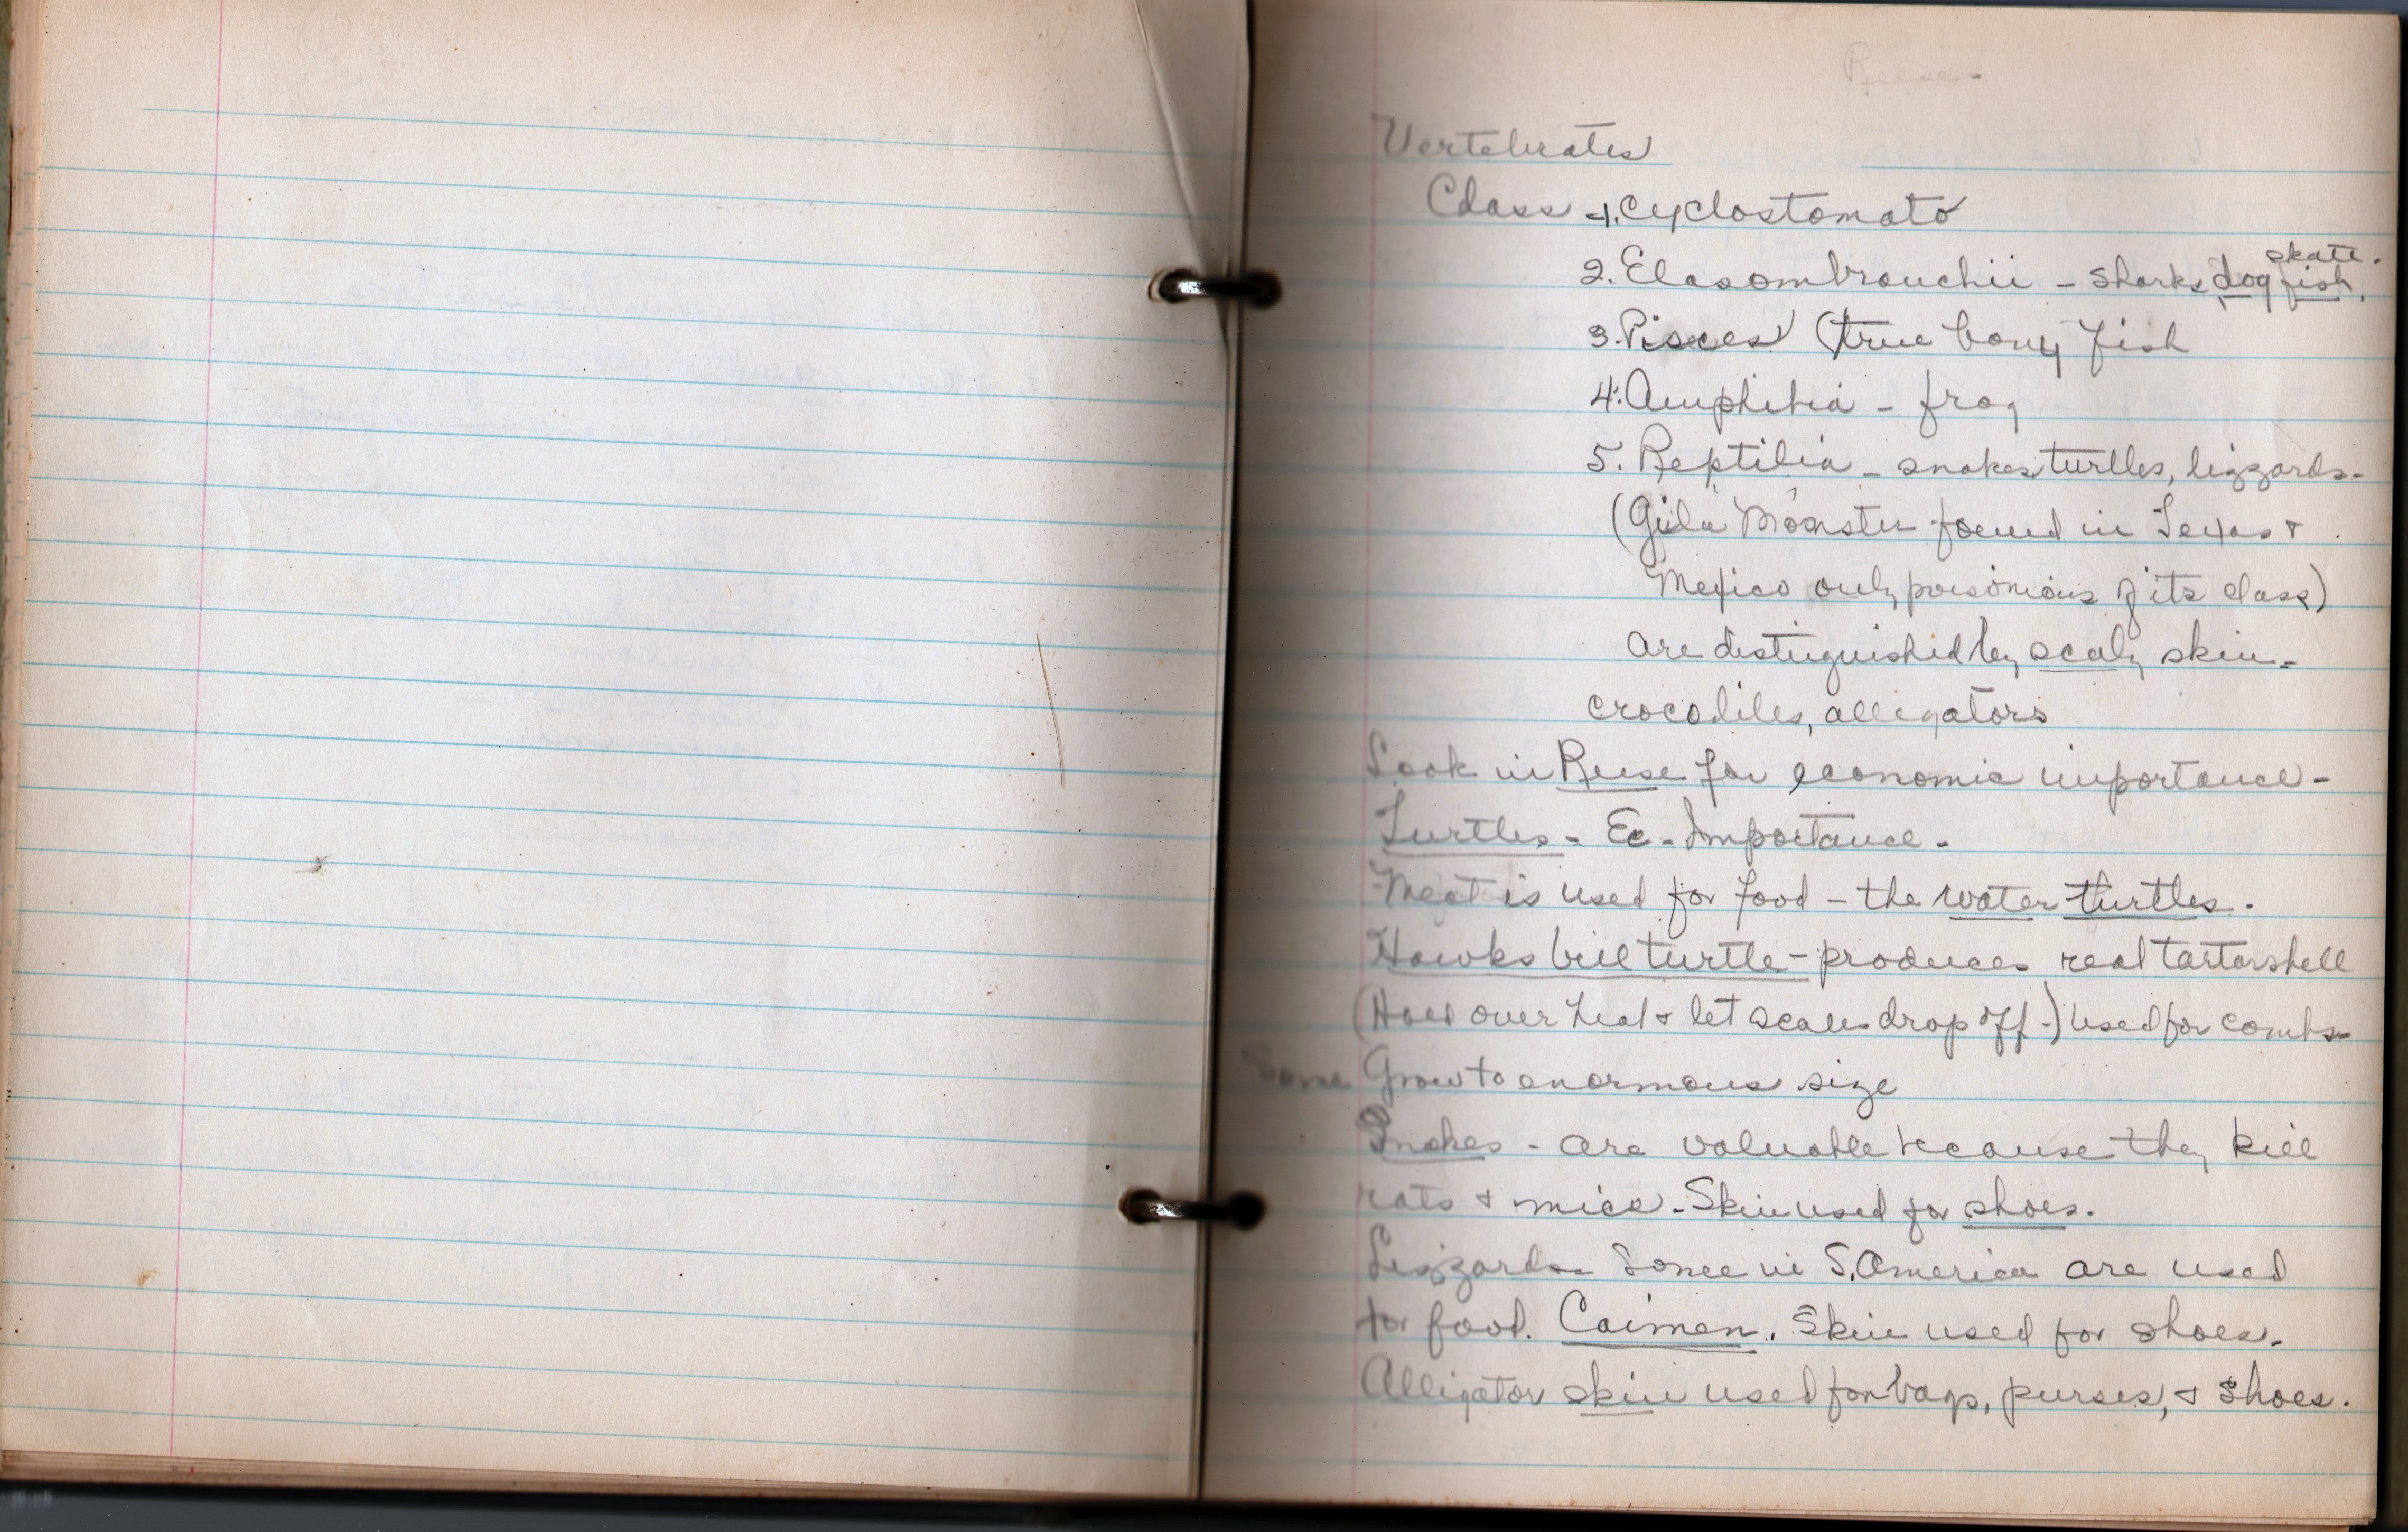 Reese -
Vertebrates
Class - 1. Cyclostomato
skate.
2. Elasombrouchii - sharks, dog fish,
3. Pisces (true bony fish
4. Amphibia - frog
5. Reptilia - snakes turtles, lizzards -
(Gila Monster found in Texas &
Mexico only poisonious of its class)
are distinguished by scaly skin -
crocodiles, alligators
Look in Reese for economic importance -
Turtles - Ec - Importance -
Meat is used for food - the water turtles.
Hawks bill turtle - produces real tartarshell
(Hold over heat & let scales drop off -) used for combs -
Some Grow to enormous size
Snakes - are valuable because they kill
rats & mice - Skin used for shoes.
Lizzards - Some in S. America are used
for food. Caiman. Skin used for shoes -
Alligator skin used for bags, purses, & shoes.